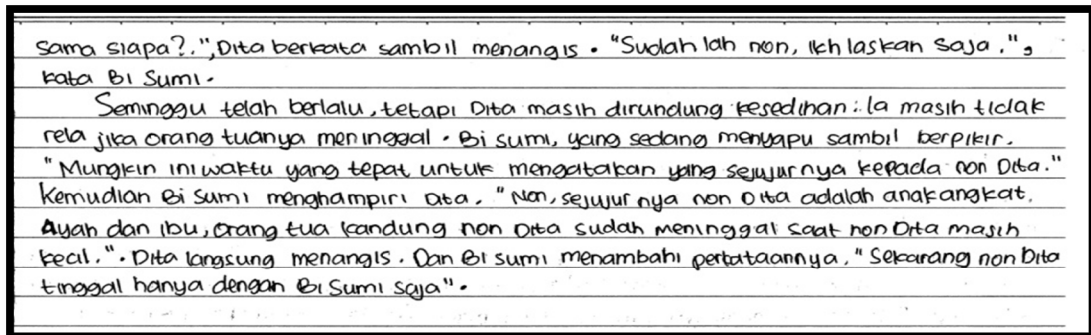 sama siapa?.", Dita berkata sambil menangis. "Sudah lah non, ikhlaskan saja.",
kata Bi Sumi.
Seminggu telah berlalu, tetapi Dita masih dirundung kesedihan. Ia masih tidak
rela jika orang tuanya meninggal. Bi sumi, yang sedang menyapu sambil berpikir.
"Mungkin ini waktu yang tepat untuk mengatakan yang sejujurnya kepada non Dita."
Kemudian Bi Sumi menghampiri Dita. "Non, sejujurnya non Dita adalah anak angkat.
Ayah dan ibu, orang tua kandung non Dita sudah meninggal saat non Dita masih
kecil.". Dita langsung menangis. Dan Bi sumi menambahi perkataannya, "Sekarang non Dita
tinggal hanya dengan Bi Sumi saja".